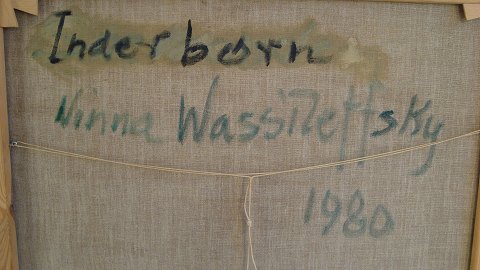 Inderbørn
Ninna Wassileffsky
1980